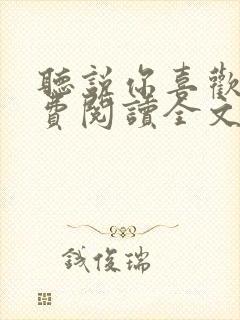 聽說你喜歡
費閱讀全文
鈛俊瑞